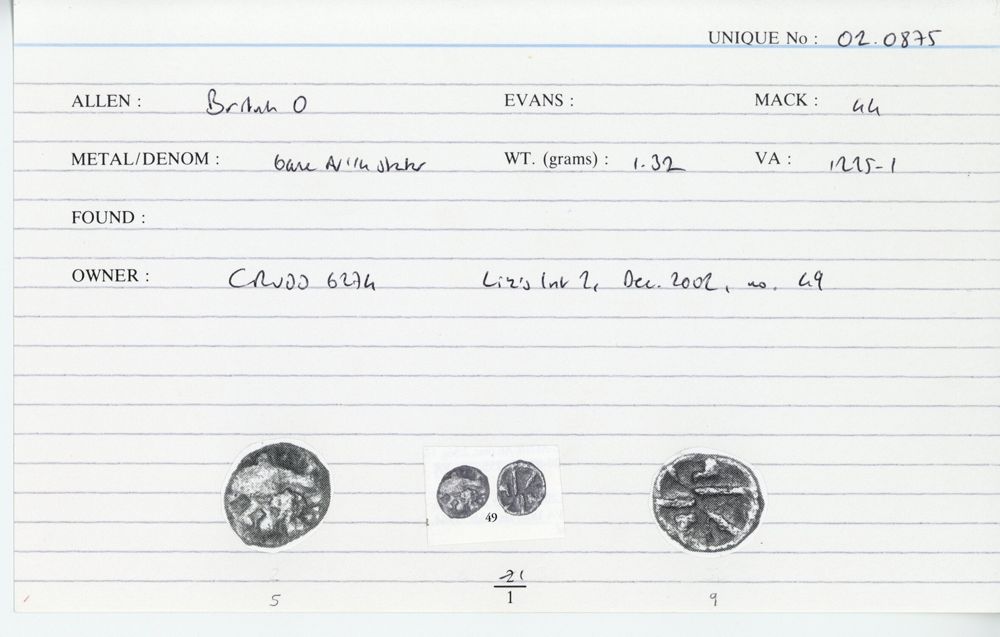 UNIQUE No : 02.0875
ALLEN : British O EVANS : MACK : 44
METAL/DENOM : base AV 1/4 stater WT. (grams) : 1.32 VA : 1225-1
FOUND :
OWNER : CRUDD 6274 Liz's Int 2, Dec. 2002, no. 49
49
21
1
5 9